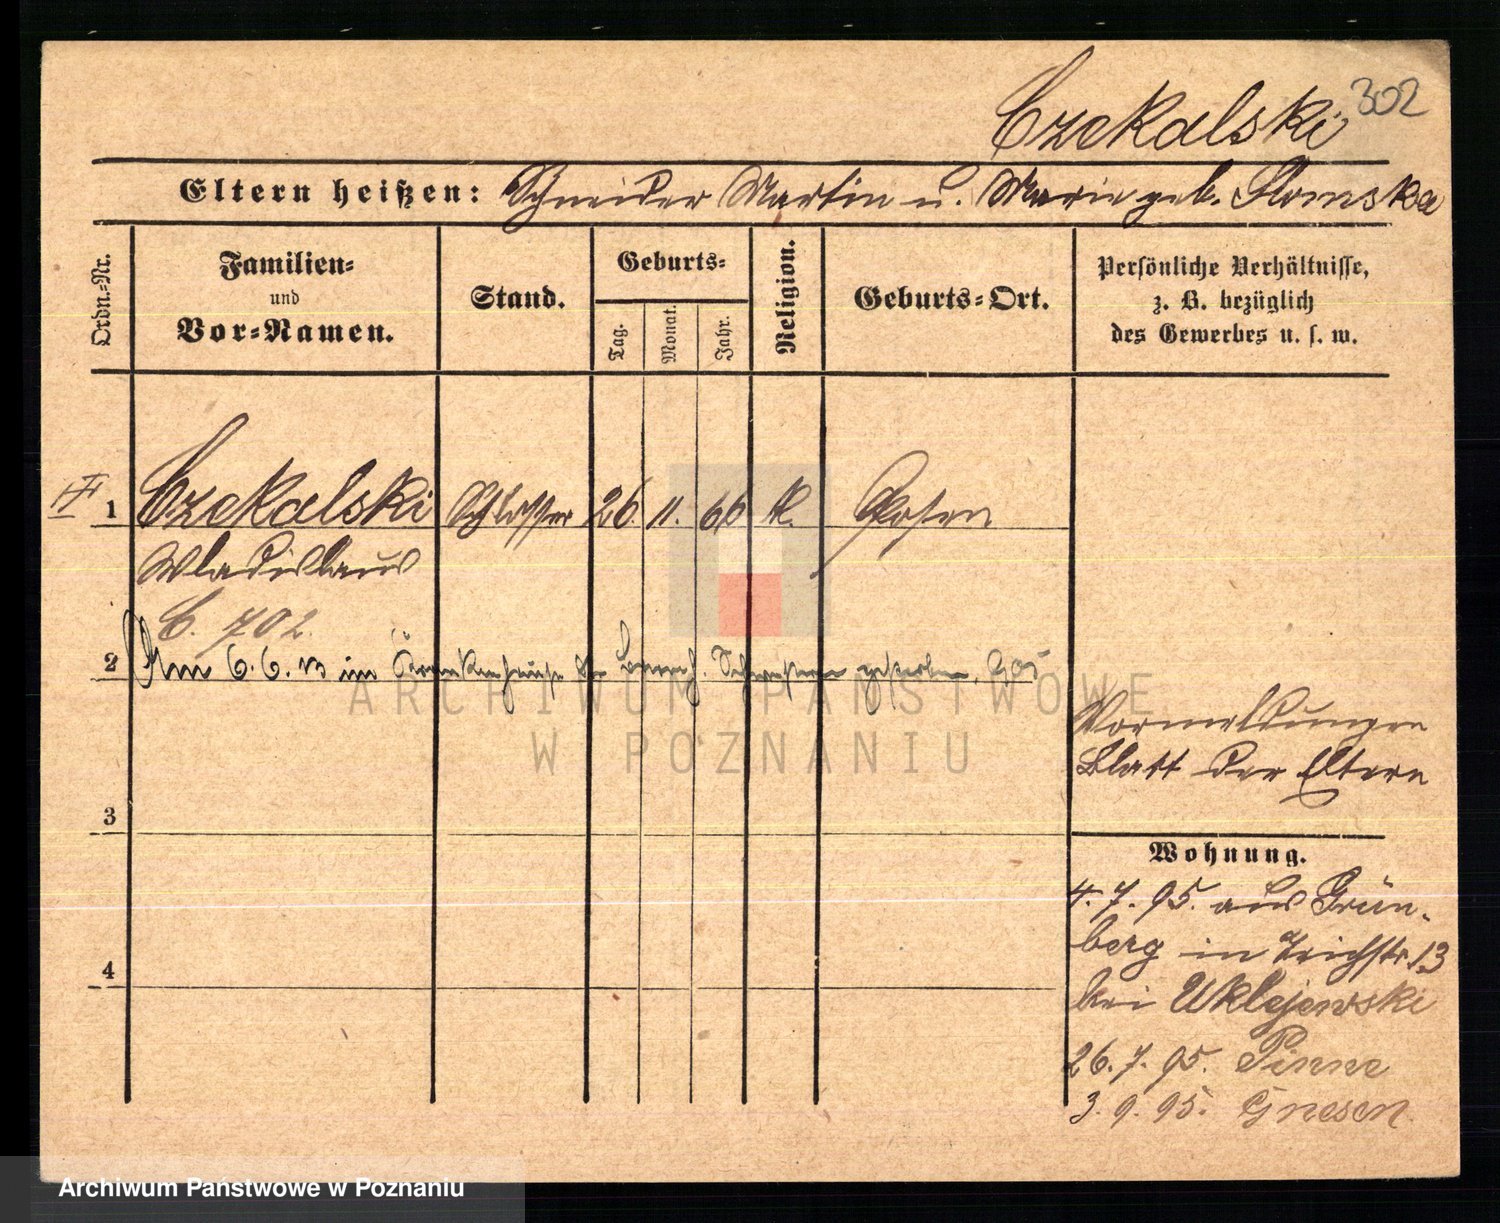 302
Czekalski
Eltern heißen: Schneider Martin u. Marie geb. Slomska
Ordn.-Nr.
Familien-
und
Vor-Namen.
Stand.
Geburts-
Tag.
Monat.
Jahr.
Religion.
Geburts-Ort.
Persönliche Verhältnisse,
z. B. bezüglich
des Gewerbes u. s. w.
1 Czekalski Schlosser 26. 11. 66 k. Posen
Wladislaus
C. 702.
2 Am 6.6.13 im Krankenhause der barmh. Schwestern gestorben.
ARCHIWUM PAŃSTWOWE
W POZNANIU
Vormeldungen
Blatt der Eltern
3
Wohnung.
4. 7. 95. aus Grün-
berg in Teichstr. 13
bei Uklejewski
4
26. 7. 95. Pinne
3. 9. 95. Gnesen
Archiwum Państwowe w Poznaniu